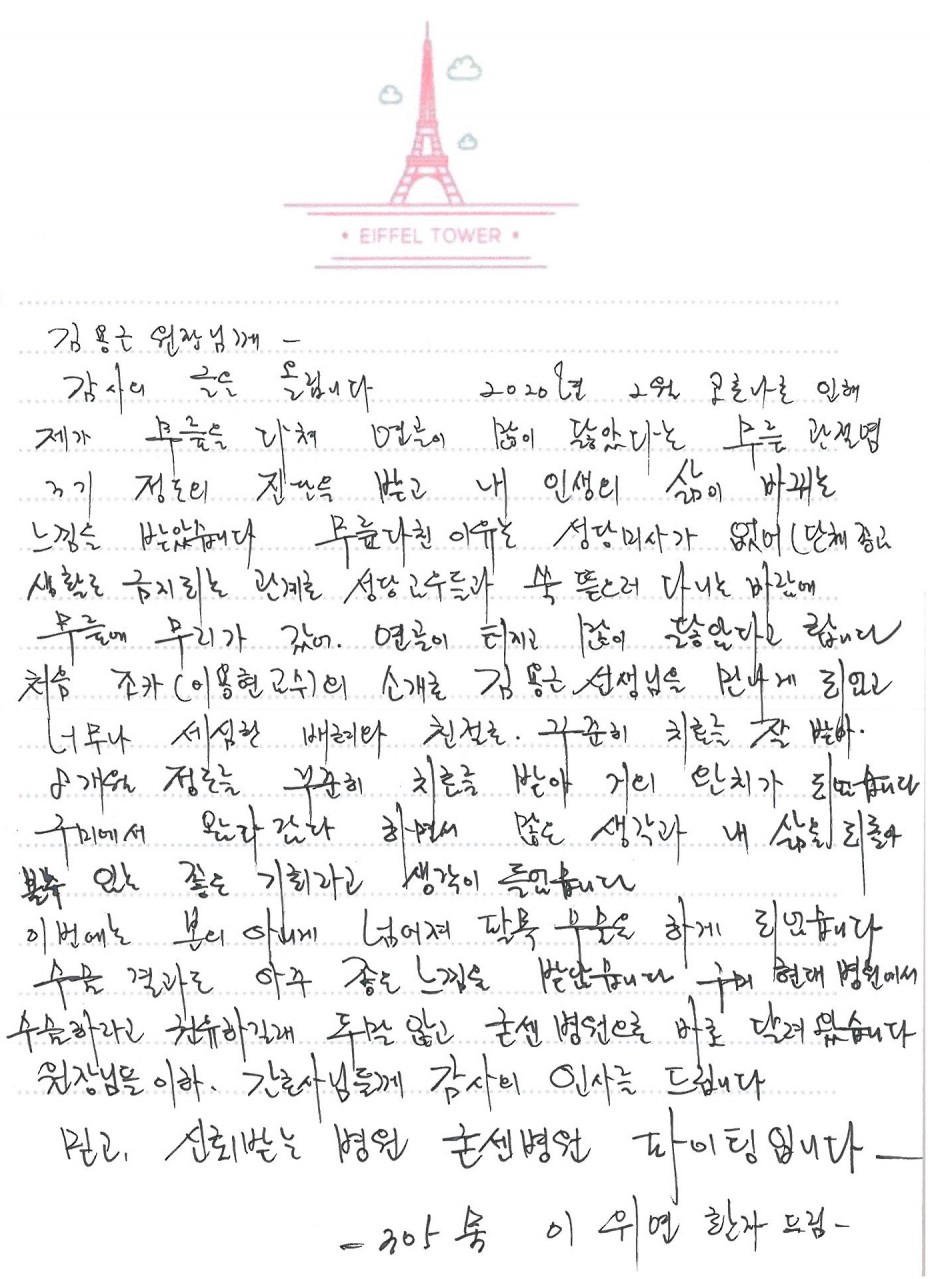 • EIFFEL TOWER •
김용근 원장님께 –
감사의 글을 올립니다 2020년 2월 코로나로 인해
제가 무릎을 다쳐 연골이 많이 닳았다는 무릎 관절염
3기 정도의 진단을 받고 내 인생의 삶이 바뀌는
느낌을 받았습니다 무릎다친 이유는 성당미사가 없어 (단체 종교
생활로 금지되는 관계로 성당교우들과 쑥 뜯으러 다니는 바람에
무릎에 무리가 갔어. 연골이 터지고 많이 닳았다고 합니다
처음 조카 (이용현교수)의 소개로 김용근 선생님을 만나게 되었고
너무나 세심한 배려와 친절로. 꾸준히 치료를 잘 받아.
8개월 정도를 꾸준히 치료를 받아 거의 완치가 되었습니다
구미에서 왔다갔다 하면서 많은 생각과 내 삶을 되돌아
볼수 있는 좋은 기회라고 생각이 들었습니다
이번에는 본의 아니게 넘어져 팔목 수술을 하게 되었습니다
수술 결과도 아주 좋은 느낌을 받았습니다 구미 현대 병원에서
수술하라고 권유하길래 두말 않고 굳센 병원으로 바로 달려 왔습니다
원장님들 이하. 간호사님들께 감사의 인사를 드립니다
믿고, 신뢰받는 병원 굳센병원 파이팅입니다 —
– 305 호 이위연 환자 드림 –